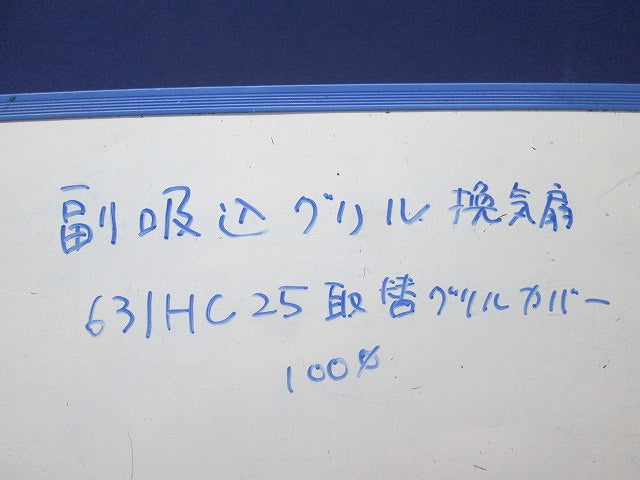 副吸込グリル換気扇
631HC25取替グリルカバー
100φ